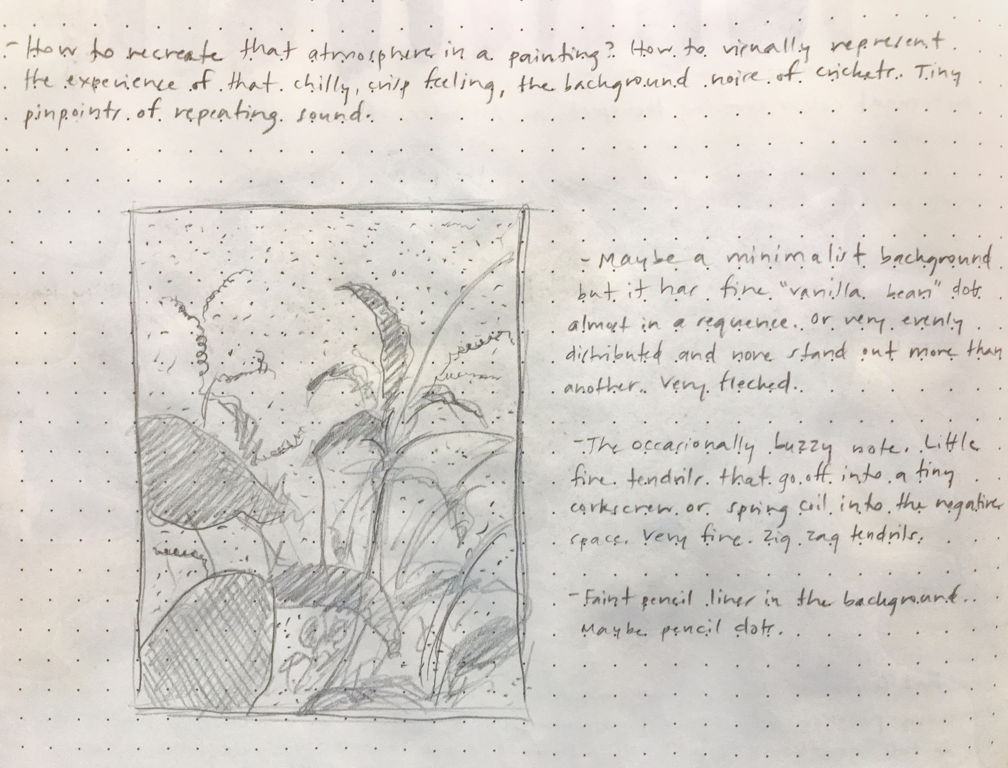 - How to recreate that atmosphere in a painting? How to visually represent
the experience of that chilly, crisp feeling, the background noise of crickets. Tiny
pinpoints of repeating sound.
- Maybe a minimalist background
but it has fine "vanilla bean" dots
almost in a sequence. Or very evenly
distributed and none stand out more than
another. Very flecked.
- The occasionally buzzy note. Little
fine tendrils that go off into a tiny
corkscrew or spring coil into the negative
space. Very fine zig zag tendrils.
- Faint pencil lines in the background.
Maybe pencil dots.